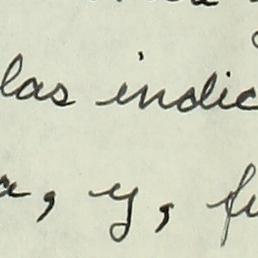 las indic
a, y, fu